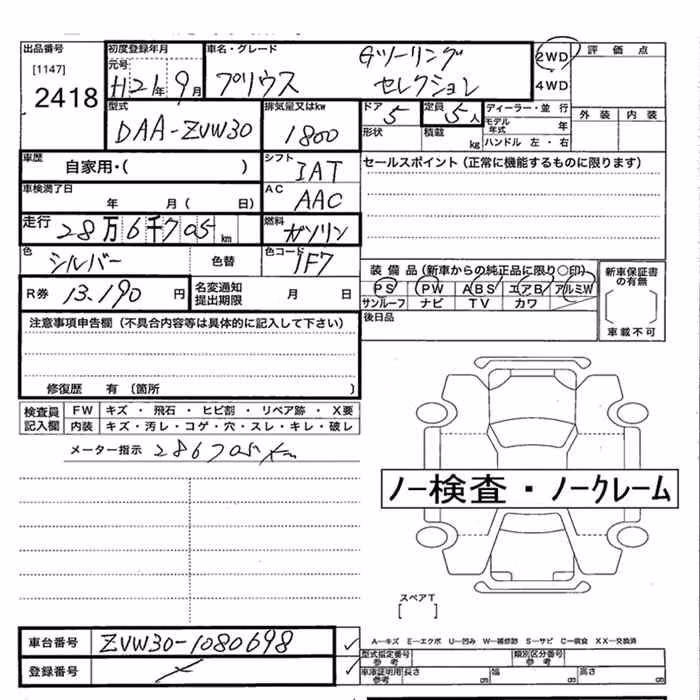 出品番号
[1147]
2418
初度登録年月
元号
H21年 9月
車名・グレード
プリウス
Gツーリング
セレクション
2WD
4WD
評価点
外装 内装
型式
DAA-ZVW30
排気量又はkw
1800
ドア 5
形状
定員 5人
積載 kg
ディーラー・並行
モデル年式 年
ハンドル 左・右
車歴
自家用・( )
シフト
IAT
セールスポイント(正常に機能するものに限ります)
車検満了日
年 月( 日)
AC
AAC
走行
28万6千705km
燃料
ガソリン
色
シルバー
色替
色コード
1F7
装備品(新車からの純正品に限り○印)
PS PW ABS エアB アルミW
サンルーフ ナビ TV カワ
新車保証書
の有無
車載不可
R券 13,190円
名変通知
提出期限
月 日
後日品
注意事項申告欄(不具合内容等は具体的に記入して下さい)
修復歴 有(箇所 )
検査員
記入欄
FW キズ・飛石・ヒビ割・リペア跡・X要
内装 キズ・汚レ・コゲ・穴・スレ・キレ・破レ
メーター指示 286705km
ノー検査・ノークレーム
スペアT
[ ]
車台番号
ZVW30-1080698
登録番号
A―キズ E―エクボ U―凹み W―補修跡 S―サビ C―腐食 XX―交換済
型式指定番号
参考
類別区分番号
参考
車庫証明用
参考
長さ
幅
高さ